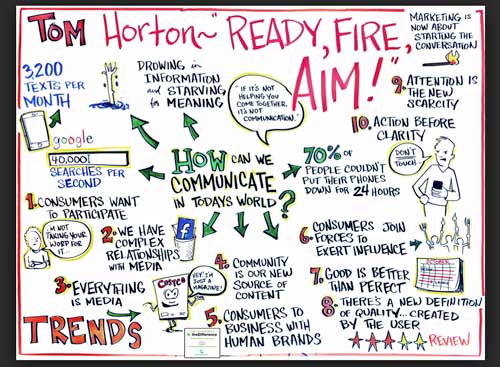 TOM HORTON~ "READY, FIRE,
AIM!"
MARKETING IS
NOW ABOUT
STARTING THE
CONVERSATION
3,200
TEXTS PER
MONTH
DROWNING in
INFORMATION
and STARVING
for MEANING
"IF IT'S NOT
HELPING YOU
COME TOGETHER,
IT'S NOT
COMMUNICATION."
9. ATTENTION IS
THE NEW
SCARCITY
10. ACTION BEFORE
CLARITY
DON'T
TOUCH
google
40,000
SEARCHES PER
SECOND
HOW CAN WE
COMMUNICATE
IN TODAYS WORLD?
70% OF
PEOPLE COULDN'T
PUT THEIR PHONES
DOWN FOR 24 HOURS
1. CONSUMERS WANT
TO PARTICIPATE
I'M NOT
TAKING YOUR
WORD FOR
IT
2. WE HAVE
COMPLEX
RELATIONSHIPS
WITH MEDIA
f
3. EVERYTHING
IS MEDIA
COSTCO
HEY! I'M
JUST A
MAGAZINE!
4. COMMUNITY
IS OUR NEW
SOURCE OF
CONTENT
5. CONSUMERS TO
BUSINESS WITH
HUMAN BRANDS
6. CONSUMERS JOIN
FORCES TO
EXERT INFLUENCE
7. GOOD IS BETTER
THAN PERFECT
OCTOBER
8. THERE'S A NEW DEFINITION
OF QUALITY... CREATED
BY THE USER
REVIEW
TRENDS
theDifference